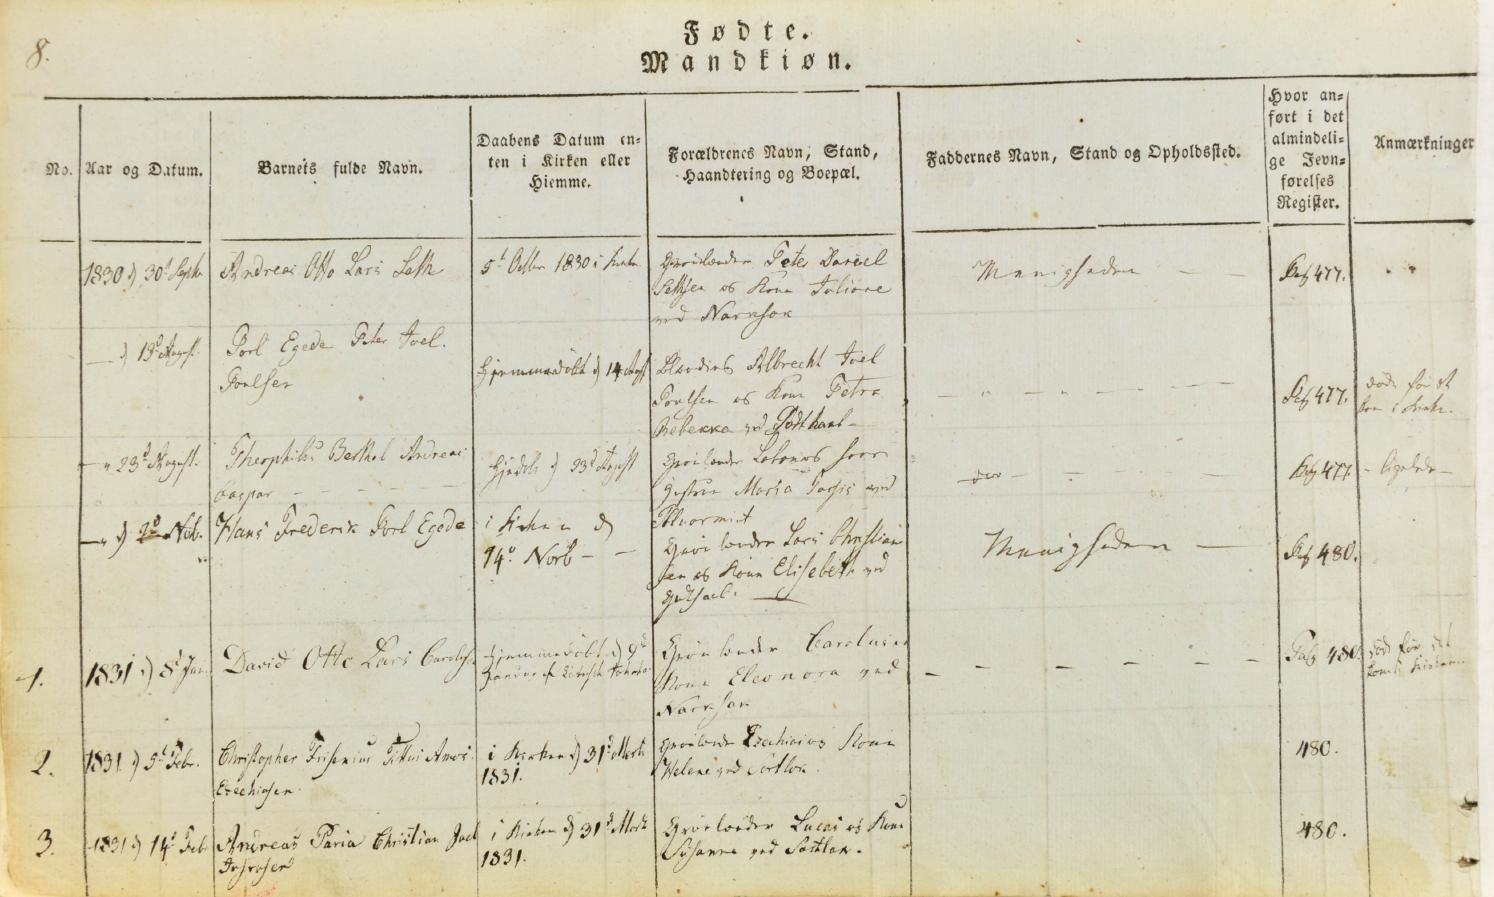 8.
Fødte.
Mandkiøn.
No.
Aar og Datum.
Barnets fulde Navn.
Daabens Datum en=
ten i Kirken eller
Hiemme.
Forældrenes Navn, Stand,
Haandtering og Boepæl.
Faddernes Navn, Stand og Opholdssted.
Hvor an=
ført i det
almindeli=
ge Jevn=
førelses
Register.
Anmærkninger
1830 d 30t Septbr
Andreas Otto Lars Seth
5t Octbr 1830 i Kirken
Grønlænder Peter Daniel
Sethsen og Kone Juliane
ved Narksok
Menigheden — —
Pag 477.
— d 13d August.
Poul Egede Peter Joel.
Poulsen
Hjemmedøbt d 14 Augst
Albrecht Joel
Poulsen og Kone Petra
Rebekka ved Godthaab
Pag 477.
døde før det
kom i Kirke.
— " 23d August.
Theophilus Berthel Andreas
Caspar — — —
Hjedbt d 23d August
Grønlænder
Maria ved
do —
Pag 477
— ligeledes —
— " d 2d Nob.
Hans Frederik Povl Egede
i Kirken d
14d Novb — —
Grønlænder Lars Christian
sen og Kone Elisebeth ved
Menigheden —
Pag 480.
1.
1831 d 8d Jan.
David Otto Lars Carolus
Hjemmedøbt d 9d
Grønlænder Carolus
Kone Eleonora ved
Narksok
— — — — — —
Pag 480.
død før det
kom i Kirken.
2.
1831 d 5t Febr.
Christopher Frisenius Titus Amos
Ezechiasen
i Kirken d 31d Marts
1831.
Grønlænder Ezechias og Kone
Helene ved
480.
3.
1831 d 14d Febr
Andreas Paria Christian Joel
i Kirken d 31d Marts
1831.
Grønlænder Lucas og Kone
Susanne ved
480.